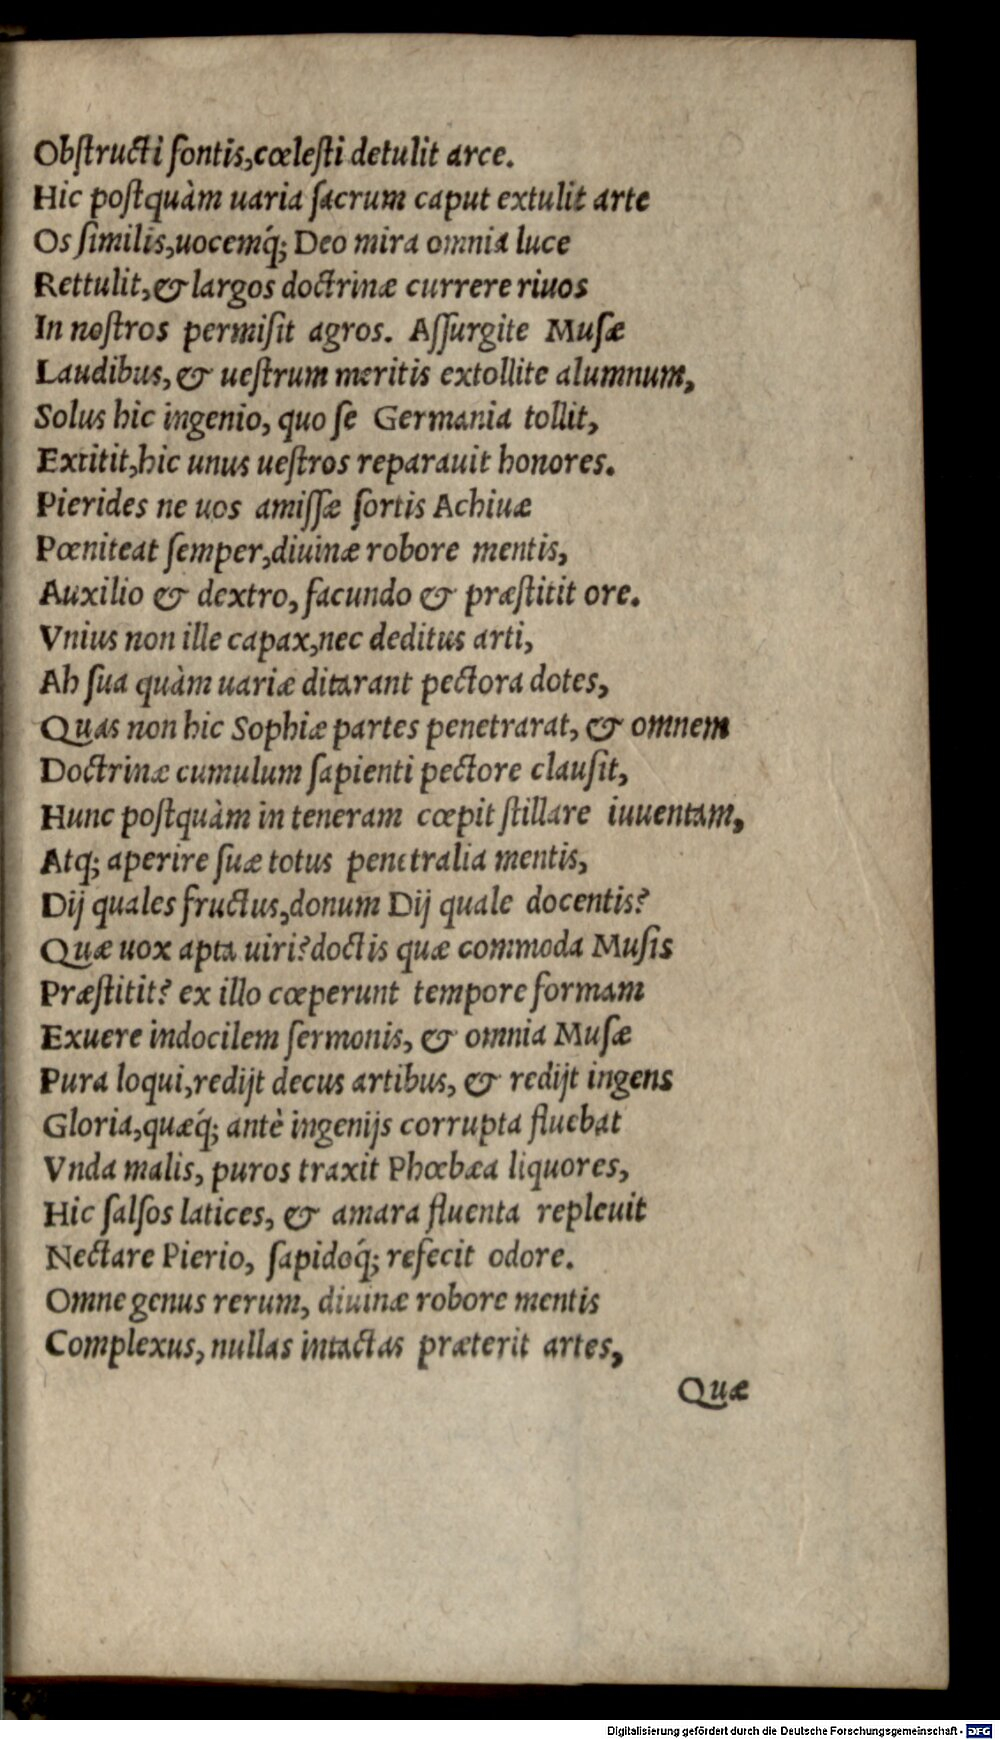 Obſtructi fontis, cœleſti detulit arce.
Hic poſtquàm uaria ſacrum caput extulit arte
Os ſimilis, uocemq́; Deo mira omnia luce
Rettulit, & largos doctrinæ currere riuos
In noſtros permiſit agros. Aſſurgite Muſæ
Laudibus, & ueſtrum meritis extollite alumnum,
Solus hic ingenio, quo ſe Germania tollit,
Extitit, hic unus ueſtros reparauit honores.
Pierides ne uos amiſſæ ſortis Achiuæ
Pœniteat ſemper, diuinæ robore mentis,
Auxilio & dextro, facundo & præſtitit ore.
Vnius non ille capax, nec deditus arti,
Ah ſua quàm uariæ ditarant pectora dotes,
Quas non hic Sophiæ partes penetrarat, & omnem
Doctrinæ cumulum ſapienti pectore clauſit,
Hunc poſtquàm in teneram cœpit ſtillare iuuentam,
Atq; aperire ſuæ totus penetralia mentis,
Dij quales fructus, donum Dij quale docentis?
Quæ uox apta uiri? doctis quæ commoda Muſis
Præſtitit? ex illo cœperunt tempore formam
Exuere indocilem ſermonis, & omnia Muſæ
Pura loqui, redijt decus artibus, & redijt ingens
Gloria, quæq́; antè ingenijs corrupta fluebat
Vnda malis, puros traxit Phœbæa liquores,
Hic ſalſos latices, & amara fluenta repleuit
Nectare Pierio, ſapidoq́; refecit odore.
Omne genus rerum, diuinæ robore mentis
Complexus, nullas intactas præterit artes,
Quæ
Digitalisierung gefördert durch die Deutsche Forschungsgemeinschaft - DFG